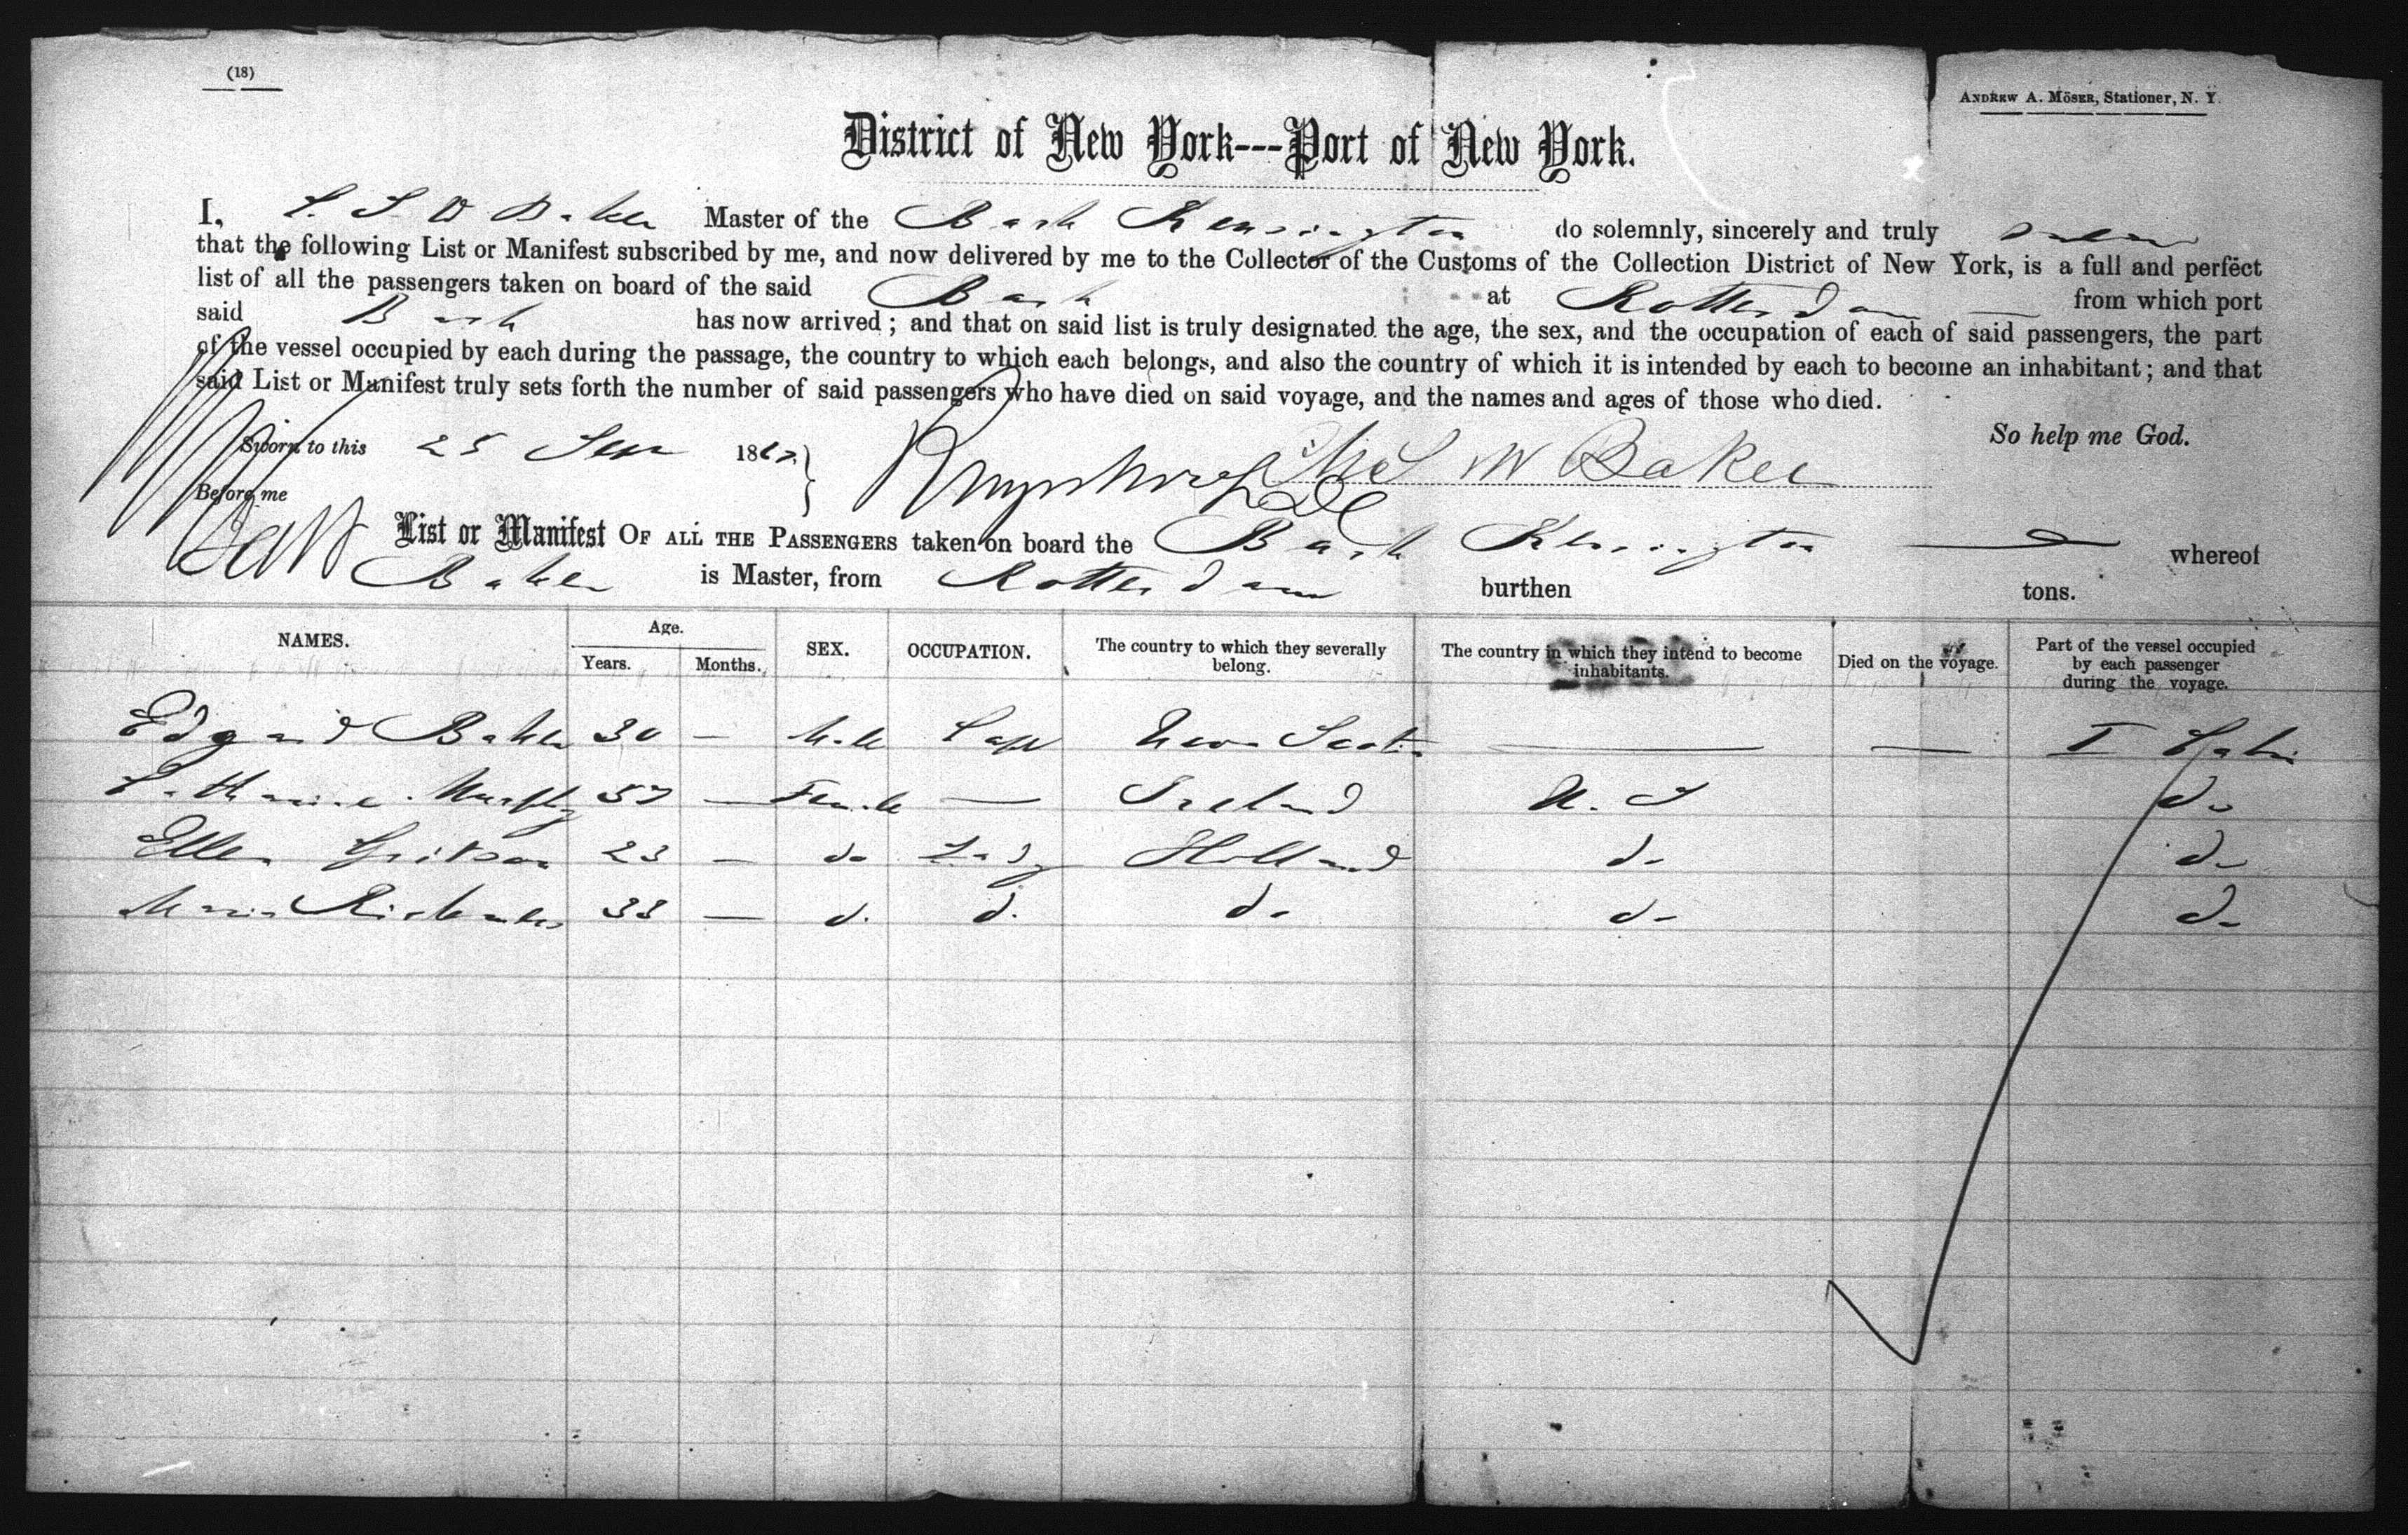 (18)
ANDREW A. MÖSER, Stationer, N. Y.
District of New York---Port of New York.
I, Baker Master of the Bark Kensington do solemnly, sincerely and truly swear
that the following List or Manifest subscribed by me, and now delivered by me to the Collector of the Customs of the Collection District of New York, is a full and perfect
list of all the passengers taken on board of the said Bark at Rotterdam from which port
said Bark has now arrived; and that on said list is truly designated the age, the sex, and the occupation of each of said passengers, the part
of the vessel occupied by each during the passage, the country to which each belongs, and also the country of which it is intended by each to become an inhabitant; and that
said List or Manifest truly sets forth the number of said passengers who have died on said voyage, and the names and ages of those who died.
So help me God.
Sworn to this 25 186
W Baker
Before me
List or Manifest OF ALL THE PASSENGERS taken on board the Bark Kensington whereof
Baker is Master, from Rotterdam burthen tons.
NAMES. Age. Years. Months. SEX. OCCUPATION. The country to which they severally belong. The country in which they intend to become inhabitants. Died on the voyage. Part of the vessel occupied by each passenger during the voyage.
Edgard Baker 30 — Male Capt Nova Scotia — — I Cabin
Catharine Murphy 57 — Female — Ireland U. S do
Ellen 23 — do Lady Holland do do
Maria 33 — do do do do do